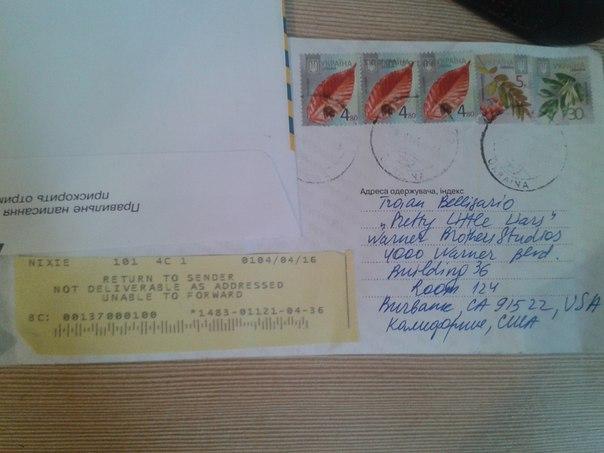 УКРАЇНА УКРАЇНА УКРАЇНА УКРАЇНА УКРАЇНА
4.80 4.80 4.80 5 30
UKRAINA
Правильне написання
прискорить отрим
Адреса одержувача, індекс
Trojan Bellisario
„Pretty Little Liars"
Warner Brother Studios
4000 Warner Blvd.
Building 36
Room 124
Burbank, CA 91522, USA
Калифорние, США
NIXIE 101 4C 1 0104/04/16
RETURN TO SENDER
NOT DELIVERABLE AS ADDRESSED
UNABLE TO FORWARD
BC: 00137000100 *1483-01121-04-36